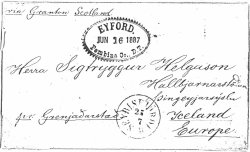 via Granton Scotland
EYFORD.
JUN 16 1887
Pembina Co. D.T.
Herra Sigtryggur Helgason
Hallbjarnarstöðum
Þingeyjarsýslu
pr Grenjaðarstað
Iceland
Europe.